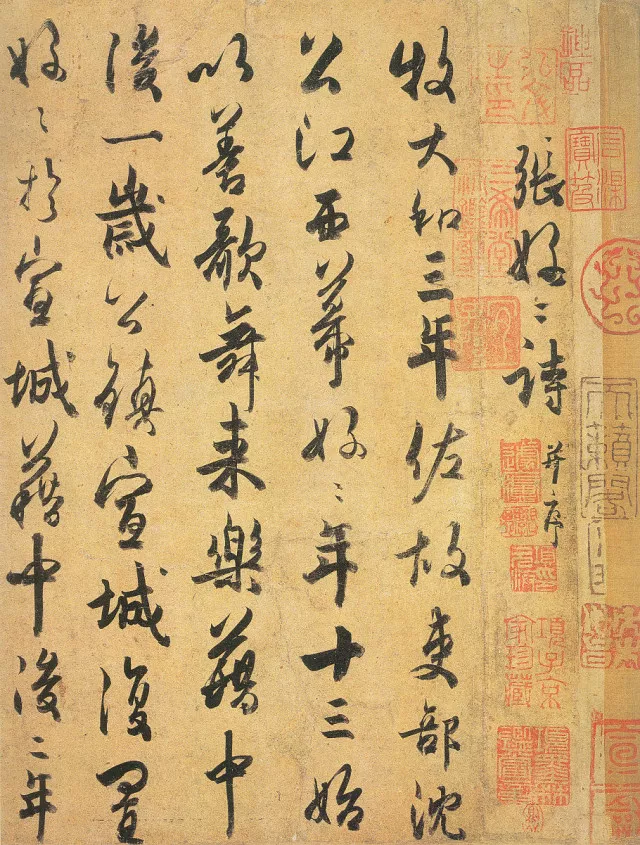 張好〻詩 并序
牧大和三年佐故吏部沈
公江西幕好〻年十三始
以善歌舞来樂籍中
後一歲公鎮宣城復置
好〻於宣城籍中後二年
天籟閣
項子京家珍藏